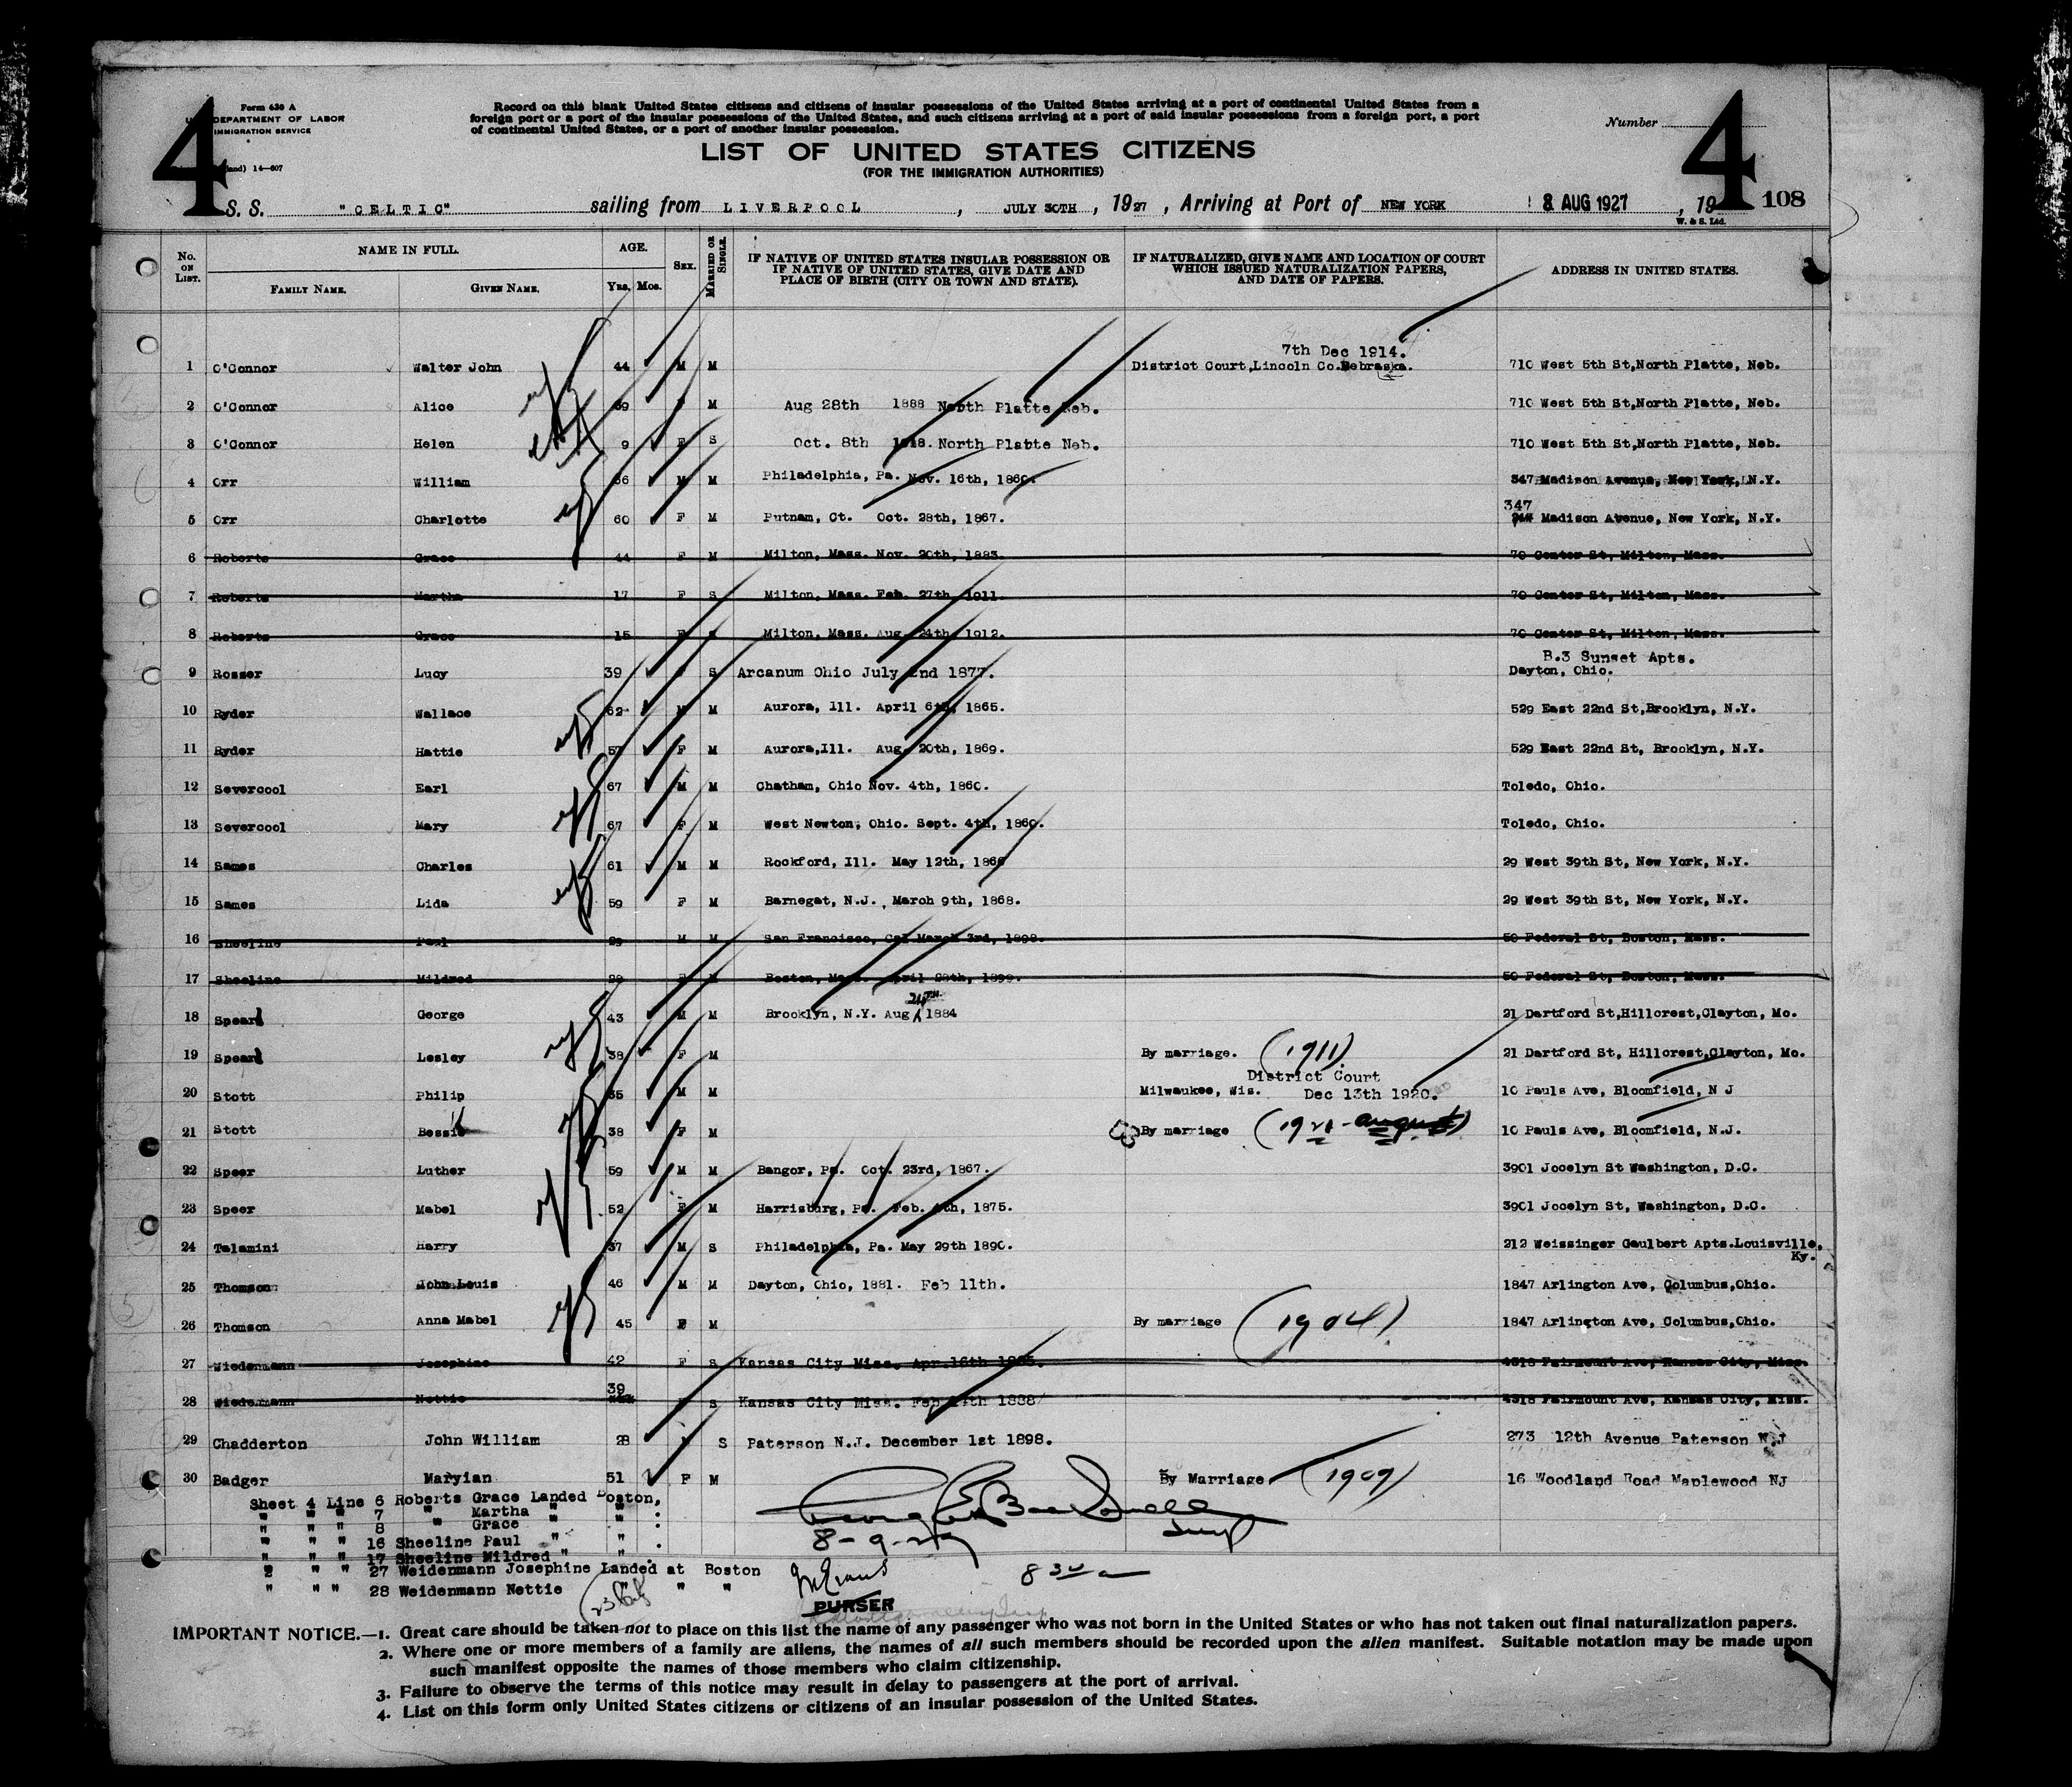 4
Form 630 A
DEPARTMENT OF LABOR
IMMIGRATION SERVICE
14—607
Record on this blank United States citizens and citizens of insular possessions of the United States arriving at a port of continental United States from a
foreign port or a port of the insular possessions of the United States, and such citizens arriving at a port of said insular possessions from a foreign port, a port
of continental United States, or a port of another insular possession.
Number
4
LIST OF UNITED STATES CITIZENS
(FOR THE IMMIGRATION AUTHORITIES)
S. S. "CELTIC" sailing from LIVERPOOL, JULY 30TH, 1927, Arriving at Port of NEW YORK 8 AUG 1927, 19
108
W. & S. Ltd.
No. ON LIST. NAME IN FULL. FAMILY NAME. GIVEN NAME. AGE. YRS. MOS. SEX. MARRIED OR SINGLE. IF NATIVE OF UNITED STATES INSULAR POSSESSION OR IF NATIVE OF UNITED STATES, GIVE DATE AND PLACE OF BIRTH (CITY OR TOWN AND STATE). IF NATURALIZED, GIVE NAME AND LOCATION OF COURT WHICH ISSUED NATURALIZATION PAPERS, AND DATE OF PAPERS. ADDRESS IN UNITED STATES.
7th Dec 1914.
1 O'Connor Walter John 44 M M District Court, Lincoln Co. Nebraska. 710 West 5th St, North Platte, Neb.
2 O'Connor Alice 39 M Aug 28th 1888 North Platte Neb. 710 West 5th St, North Platte, Neb.
3 O'Connor Helen 9 F S Oct. 8th 1918. North Platte Neb. 710 West 5th St, North Platte, Neb.
4 Orr William 66 M M Philadelphia, Pa. Nov. 16th, 1860. 347 Madison Avenue, New York, N.Y.
347
5 Orr Charlotte 60 F M Putnam, Ct. Oct. 28th, 1867. Madison Avenue, New York, N.Y.
6 Roberts Grace 44 F M Milton, Mass. Nov. 20th, 1883. 70 Center St, Milton, Mass.
7 Roberts Martha 17 F S Milton, Mass. Feb. 27th, 1911. 70 Center St, Milton, Mass.
8 Roberts Grace 15 F S Milton, Mass. Aug. 24th, 1912. 70 Center St, Milton, Mass.
B.3 Sunset Apts.
9 Rosser Lucy 39 F S Arcanum Ohio July 2nd 1877. Dayton, Ohio.
10 Ryder Wallace 62 M M Aurora, Ill. April 6th, 1865. 529 East 22nd St, Brooklyn, N.Y.
11 Ryder Hattie 57 F M Aurora, Ill. Aug. 20th, 1869. 529 East 22nd St, Brooklyn, N.Y.
12 Severcool Earl 67 M M Chatham, Ohio Nov. 4th, 1860. Toledo, Ohio.
13 Severcool Mary 67 F M West Newton, Ohio. Sept. 4th, 1860. Toledo, Ohio.
14 Sames Charles 61 M M Rockford, Ill. May 12th, 1866 29 West 39th St, New York, N.Y.
15 Sames Lida 59 F M Barnegat, N.J., March 9th, 1868. 29 West 39th St, New York, N.Y.
16 Sheeline Paul 29 M M San Francisco, Cal March 3rd, 1898. 50 Federal St, Boston, Mass.
17 Sheeline Mildred F M Boston, Mass. April 28th, 1899. 50 Federal St, Boston, Mass.
24TH
18 Spear George 43 M M Brooklyn, N.Y. Aug 1884 21 Dartford St, Hillcrest, Clayton, Mo.
19 Spear Lesley 38 F M By marriage. (1911) 21 Dartford St, Hillcrest, Clayton, Mo.
District Court
20 Stott Philip 35 M M Milwaukee, Wis. Dec 13th 1920. 10 Pauls Ave, Bloomfield, N J
21 Stott Bessie 38 F M By marriage (1921 - August) 10 Pauls Ave, Bloomfield, N.J.
22 Speer Luther 59 M M Bangor, Pa. Oct. 23rd, 1867. 3901 Jocelyn St Washington, D.C.
23 Speer Mabel 52 F M Harrisburg, Pa. Feb. 4th, 1875. 3901 Jocelyn St, Washington, D.C.
24 Talamini Harry 37 M S Philadelphia, Pa. May 29th 1890. 212 Weissinger Gaulbert Apts. Louisville, Ky.
25 Thomson John Louis 46 M M Dayton, Ohio, 1881. Feb 11th. 1847 Arlington Ave, Columbus, Ohio.
26 Thomson Anna Mabel 45 F M By marriage (1904) 1847 Arlington Ave, Columbus, Ohio.
27 Wiedenmann Josephine 42 F S Kansas City Miss. Apr. 16th 1885. 4318 Fairmount Ave, Kansas City, Miss.
28 Wiedenmann Nettie 39 S Kansas City Miss. Feb 1888 4318 Fairmount Ave, Kansas City, Miss.
29 Chadderton John William 28 M S Paterson N.J. December 1st 1898. 273 12th Avenue Paterson N.J
30 Badger Maryian 51 F M By Marriage (1909) 16 Woodland Road Maplewood NJ
Sheet 4 Line 6 Roberts Grace Landed Boston,
" " " 7 " Martha " " .
" " " 8 " Grace " " .
" " " 16 Sheeline Paul " " .
" " " 17 Sheeline Mildred " " .
" " " 27 Weidenmann Josephine Landed at Boston
" " " 28 Weidenmann Nettie " " "
8-9-27
8 30
PURSER
IMPORTANT NOTICE.—1. Great care should be taken not to place on this list the name of any passenger who was not born in the United States or who has not taken out final naturalization papers.
2. Where one or more members of a family are aliens, the names of all such members should be recorded upon the alien manifest. Suitable notation may be made upon
such manifest opposite the names of those members who claim citizenship.
3. Failure to observe the terms of this notice may result in delay to passengers at the port of arrival.
4. List on this form only United States citizens or citizens of an insular possession of the United States.